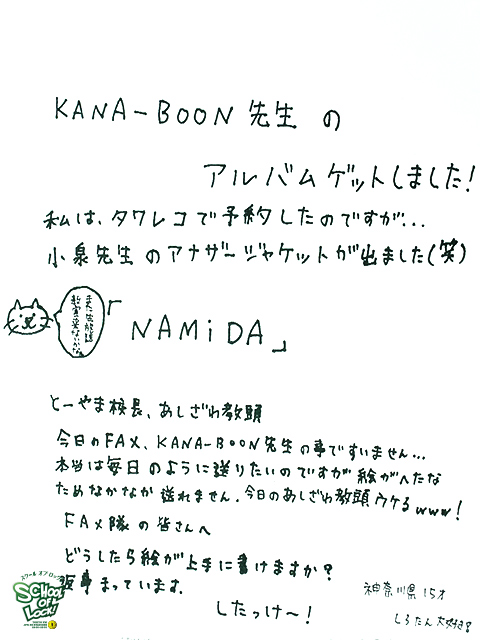 KANA-BOON 先生 の
アルバムゲットしました!
私は、タワレコで予約したのですが...
小泉先生のアナザージャケットが出ました(笑)
「NAMiDA」
とーやま校長、あしざわ教頭
今日のFAX、KANA-BOON先生の事ですいません...
本当は毎日のように送りたいのですが絵がへたな
ためなかなか送れません。今日のあしざわ教頭ウケるwww!
FAX隊の皆さんへ
どうしたら絵が上手に書けますか?
返事まっています。
したっけ〜!
神奈川県 15才
しろたん大好き
スクール オブ ロック
SCHOOL OF LOCK!